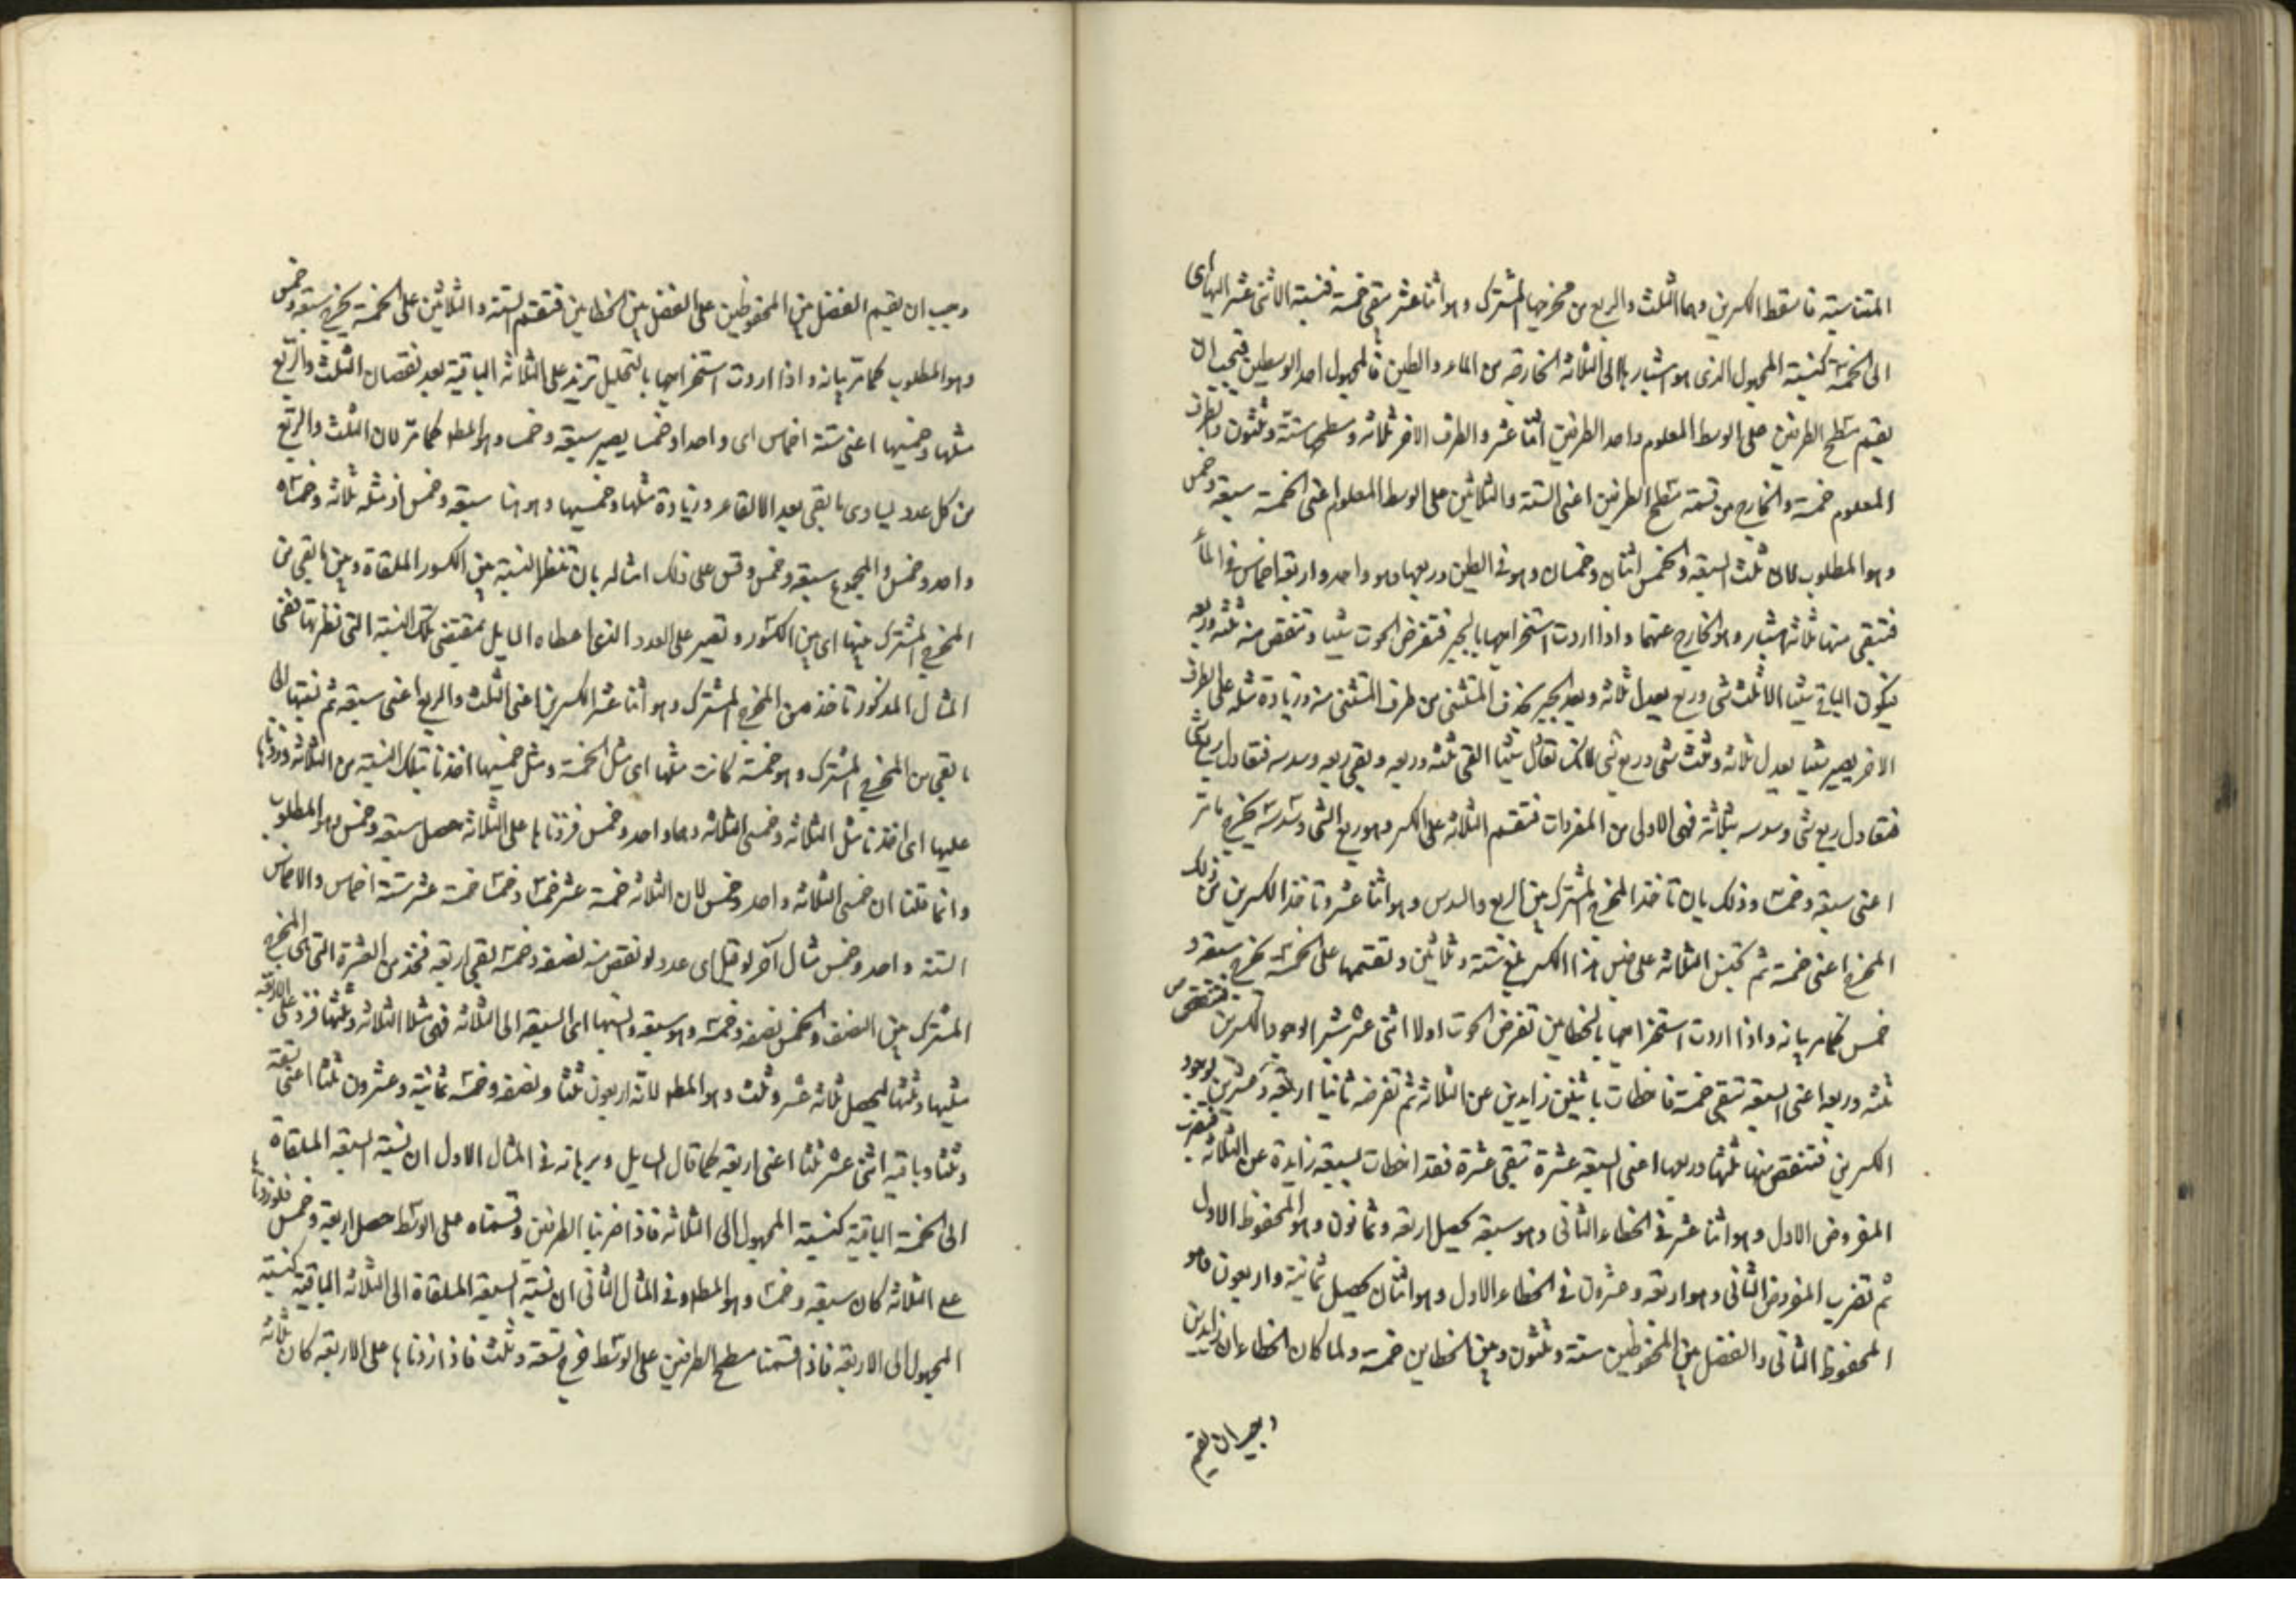 المتناسبة فاسقط الكسرين وهما الثلث والربع من مخرجهما المشترك وهو اثنا عشر يبقى خمسة فنسبة الاثنى عشر اليها اى
الى الخمسة كنسبة المجهول الذى هو اشبارها الى الثلاثة الخارجة من الماء والطين فالمجهول احد الوسطين فيجب ان
يقسم مسطح الطرفين على الوسط المعلوم واحد الطرفين اثنا عشر والطرف الاخر ثلاثة ومسطحهما ستة وثلثون والطرف
المعلوم خمسة والخارج من قسمة مسطح الطرفين اعنى الستة والثلاثين على الوسط المعلوم اعنى الخمسة سبعة وخمس
وهو المطلوب لان ثلث السبعة والخمس اثنان وخمسان وهو فى الطين وربعها وهو واحد واربعة اخماس فى الماء
فتبقى منها ثلاثة اشبار وهو الخارج عنهما واذا اردت استخراجها بالجبر فتفرض الحوت شيئا وتنقص منه ثلثه وربعه
فيكون الباقى شيئا الا ثلث شئ وربع يعدل ثلاثة وبعد الجبر بحذف المستثنى من طرف المستثنى منه وزيادة مثله على الطرف
الاخر يصير شيئا يعدل ثلاثة وثلث شئ وربع شئ لانك تقابل شيئا القى ثلثه وربعه وبقى ربعه وسدسه فتعادل ربع شئ
فتعادل ربع شئ وسدسه بثلاثة فهى الاولى من المفردات فتقسم الثلاثة على الكسر وهو ربع الشئ وسدسه يخرج ما مر
اعنى سبعة وخمسا وذلك بان تاخذ المخرج المشترك بين الربع والسدس وهو اثنا عشر وتاخذ الكسرين من ذلك
المخرج اعنى خمسة ثم تجنس الثلاثة على جنس هذا الكسر يبلغ ستة وثلثين وتقسمها على الخمسة يخرج سبعة و
خمس كما مر بيانه واذا اردت استخراجها بالخطاين تفرض الحوت اولا اثنى عشر شبرا لوجود الكسرين فتنقص
ثلثه وربعه اعنى السبعة تبقى خمسة فاخطات باثنين زايدين عن الثلاثة ثم تفرضه ثانيا اربعة وعشرين لوجود
الكسرين فتنقص منها ثلثها وربعها اعنى اربعة عشرة تبقى عشرة فقد اخطات بسبعة زايدة عن الثلاثة فتضرب
المفروض الاول وهو اثنا عشر فى الخطاء الثانى وهو سبعة يحصل اربعة وثمانون وهو المحفوظ الاول
ثم تضرب المفروض الثانى وهو اربعة وعشرون فى الخطاء الاول وهو اثنان يحصل ثمانية واربعون فهو
المحفوظ الثانى والفضل بين المحفوظين ستة وثلثون وبين الخطاين خمسة ولما كان الخطاءان زايدين
وجب ان يقسم
وجب ان يقسم الفضل بين المحفوظين على الفضل بين الخطاين فتقسم الستة والثلاثين على الخمسة يخرج سبعة وخمس
وهو المطلوب كما مر بيانه واذا اردت استخراجها بالتحليل تزيد على الثلاثة الباقية بعد نقصان الثلث والربع
مثلها وخمسيها اعنى ستة اخماس اى واحدا وخمسا يصير سبعة وخمسا وهو المط كما مر لان الثلث والربع
من كل عدد يساوى ما بقى بعد الالقاء وزيادة مثلها وخمسيها وهو هنا سبعة وخمس اذ مثله ثلاثة وخمساه
واحد وخمس والمجموع سبعة وخمس وقس على ذلك امثاله بان تنظر النسبة بين الكسور الملقاة وبين ما بقى من
المخرج المشترك بينها اى بين الكسور وتصير على العدد الذى اعطاه السايل بمقتضى تلك النسبة التى نظرتها ففى
المثال المذكور تاخذ من المخرج المشترك وهو اثنا عشر الكسرين اعنى الثلث والربع اعنى سبعة ثم نسبتها الى
ما بقى من المخرج المشترك وهو خمسة كانت مثلها اى مثل الخمسة ومثل خمسيها اخذنا بتلك النسبة من الثلاثة وزدناها
عليها اى اخذنا مثل الثلاثة وخمسى الثلاثة وهما واحد وخمس فزدناها على الثلاثة حصل سبعة وخمس وهو المطلوب
وانما قلنا ان خمسى الثلاثة واحد وخمس لان الثلاثة خمسة عشر خمسا وخمسا خمسة عشر ستة اخماس والاخماس
الستة واحد وخمس مثال آخر لو قيل اى عدد لو نقص منه نصفه وخمسه بقى اربعة فخذ من العشرة التى هى المخرج
المشترك بين النصف والخمس نصفه وخمسه وهو سبعة ونسبتها اى السبعة الى الثلاثة فهى مثلا الثلاثة وثلثها فزد على الاربعة
مثليها وثلثها ليحصل ثلاثة عشر وثلث وهو المط لانه اربعون ثلثا ونصفه وخمسه ثمانية وعشرون ثلثا اعنى تسعة
وثلثا وباقيه اثنى عشر ثلثا اعنى اربعة كما قال السايل وبرهانه فى المثال الاول ان نسبة السبعة الملقاة
الى الخمسة الباقية كنسبة المجهول الى الثلاثة فاذا ضربنا الطرفين وقسمناه على الوسط حصل اربعة وخمس فلو زدنا
على الثلاثة كان سبعة وخمسا وهو المط وفى المثال الثانى ان نسبة السبعة الملقاة الى الثلاثة الباقية كنسبة
المجهول الى الاربعة فاذا قسمنا مسطح الطرفين على الوسط خرج تسعة وثلث فاذا زدناها على الاربعة كان ثلاثة